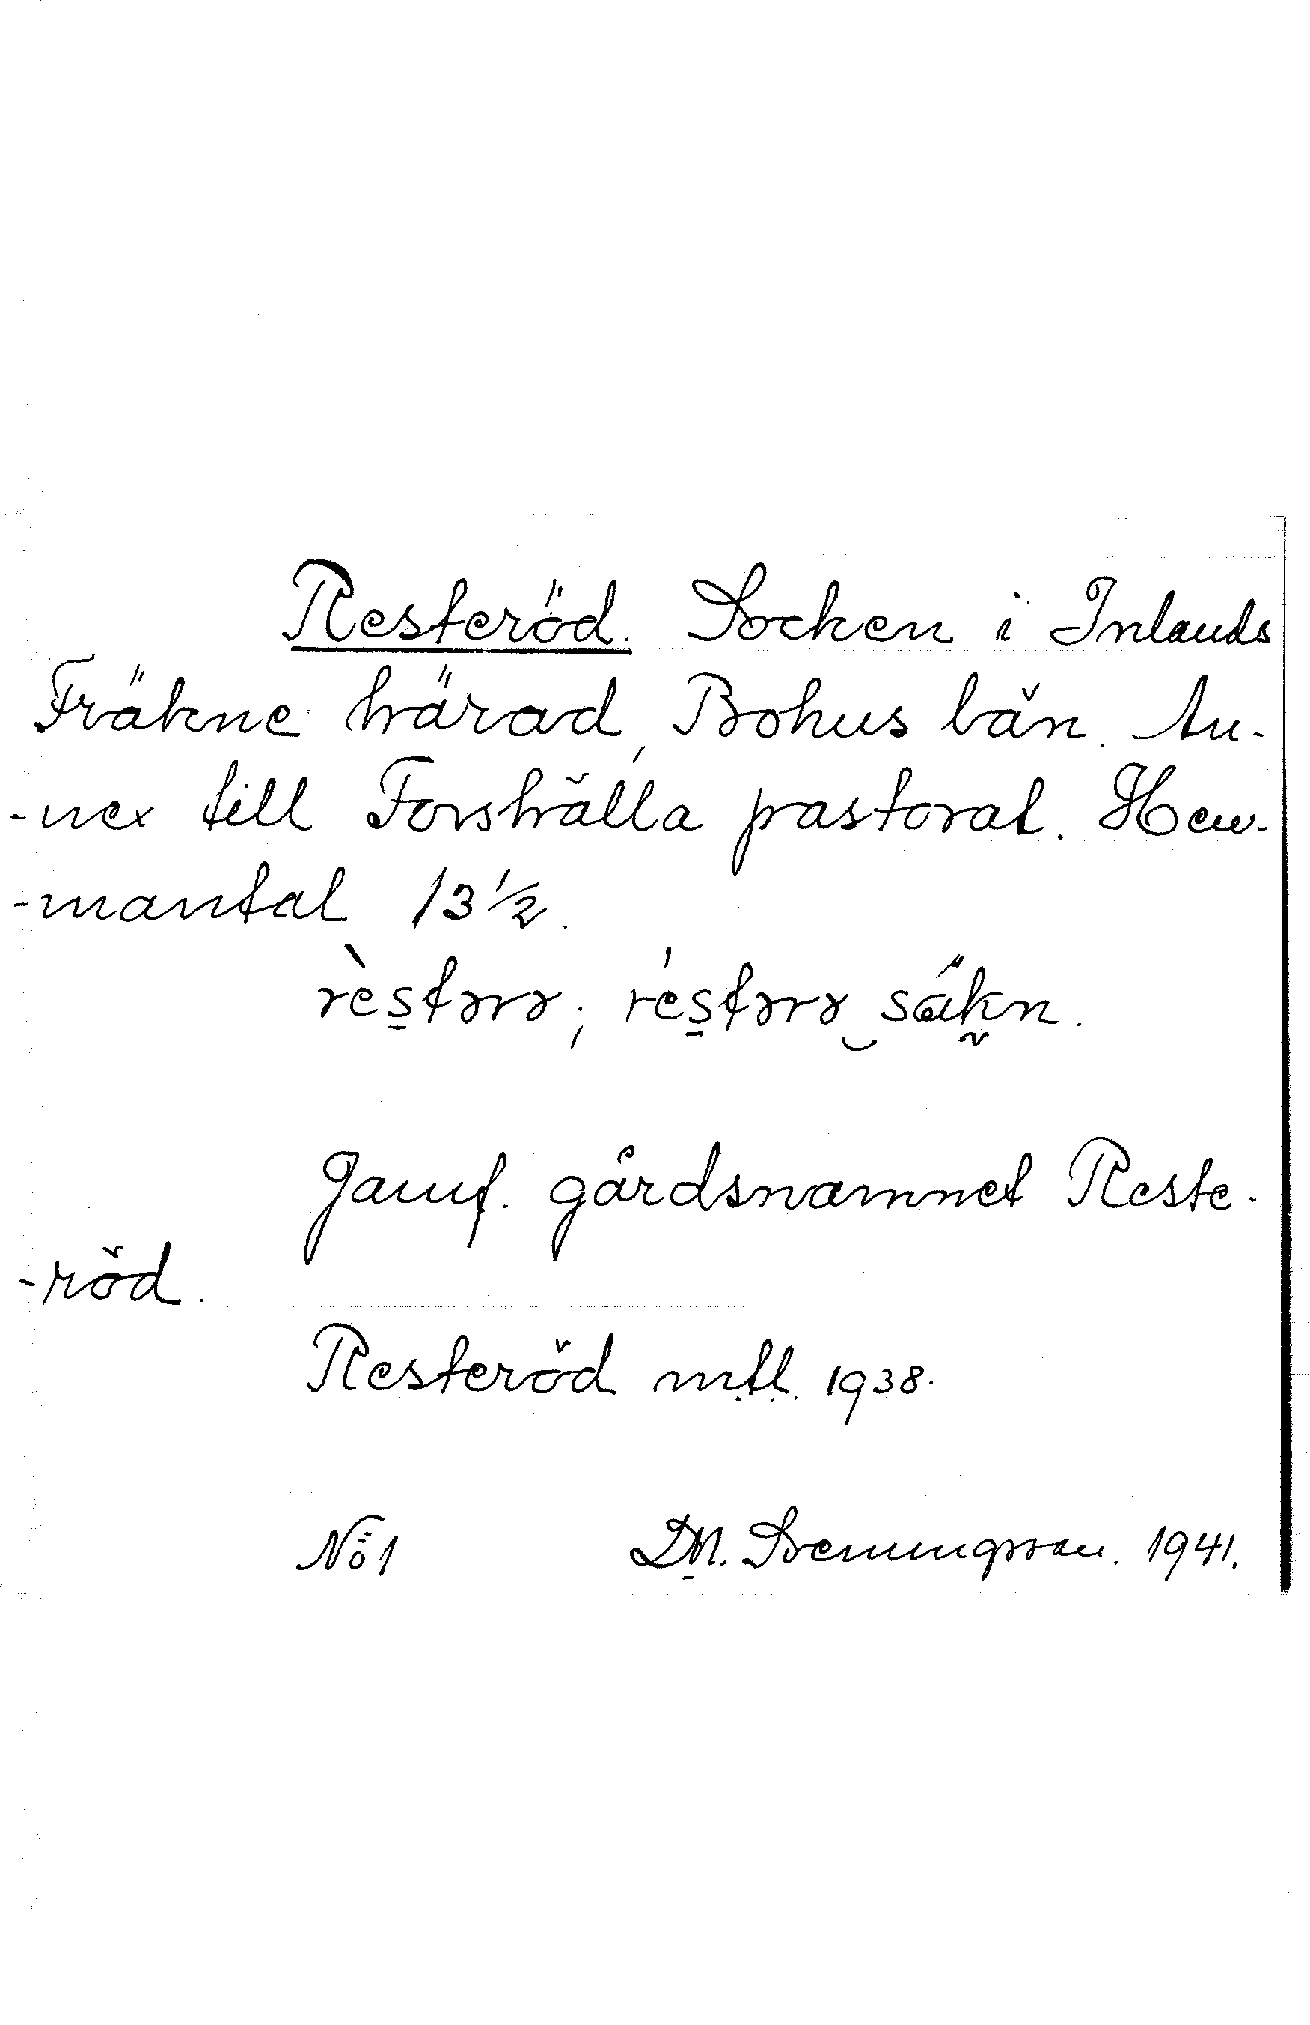 Resteröd. Socken i Inlands
Fräkne härad, Bohus län. An-
-nex till Forshälla pastorat. Hem-
-mantal 13 1/2.
rèstərə; réstərə säkn.
Jamf. gårdsnamnet Reste-
-röd.
Resteröd mtl. 1938.
No 1 D.N. 1941.